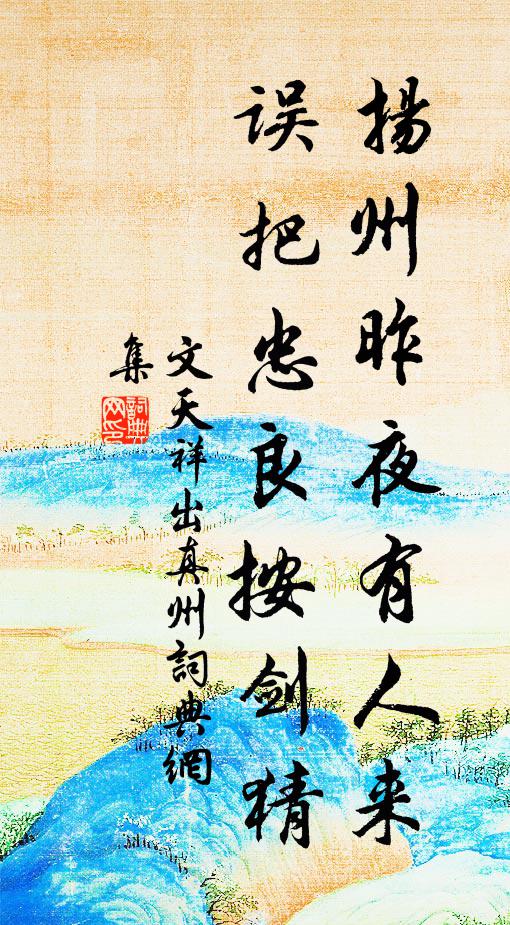 揚州昨夜有人来
误把忠良按剑猜
文天祥出真州詞典網
集
詞典網印